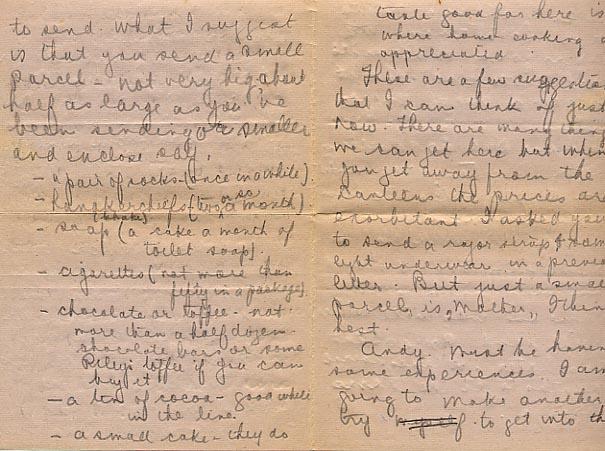 to send. What I suggest
is that you send a small
parcel - not very big about
half as large as you've
been sending or smaller
and enclose say,
- a pair of socks - (once in a while).
- handkerchiefs (two or so a month).
(khaki)
- soap (a cake a month of
toilet soap).
- cigarettes (not more than
fifty in a package).
- chocolate or toffee - not
more than a half dozen
chocolate bars or some
Riley's toffee if you can
buy it
- a tin of cocoa - good while
in the line.
- a small cake - they do
taste good for here is
where home cooking
appreciated.
These are a few suggestio
that I can think of just
now. There are many thin
we can get here but when
you get away from the
canteens the prices are
exorbitant I asked you
to send a razor strap & som
light underwear in a previo
letter. But just a smal
parcel, is, Mother, I thin
best.
Andy must be haven
some experiences. I am
going to make another
try to get into th